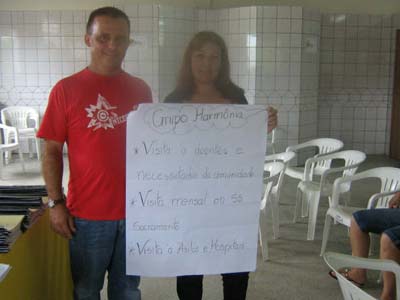 Grupo Harmônia
* Visita a doentes e
necessitados da comunidade
* Visita mensal ao SS
Sacramento
* Visita a Asilo e Hospitais